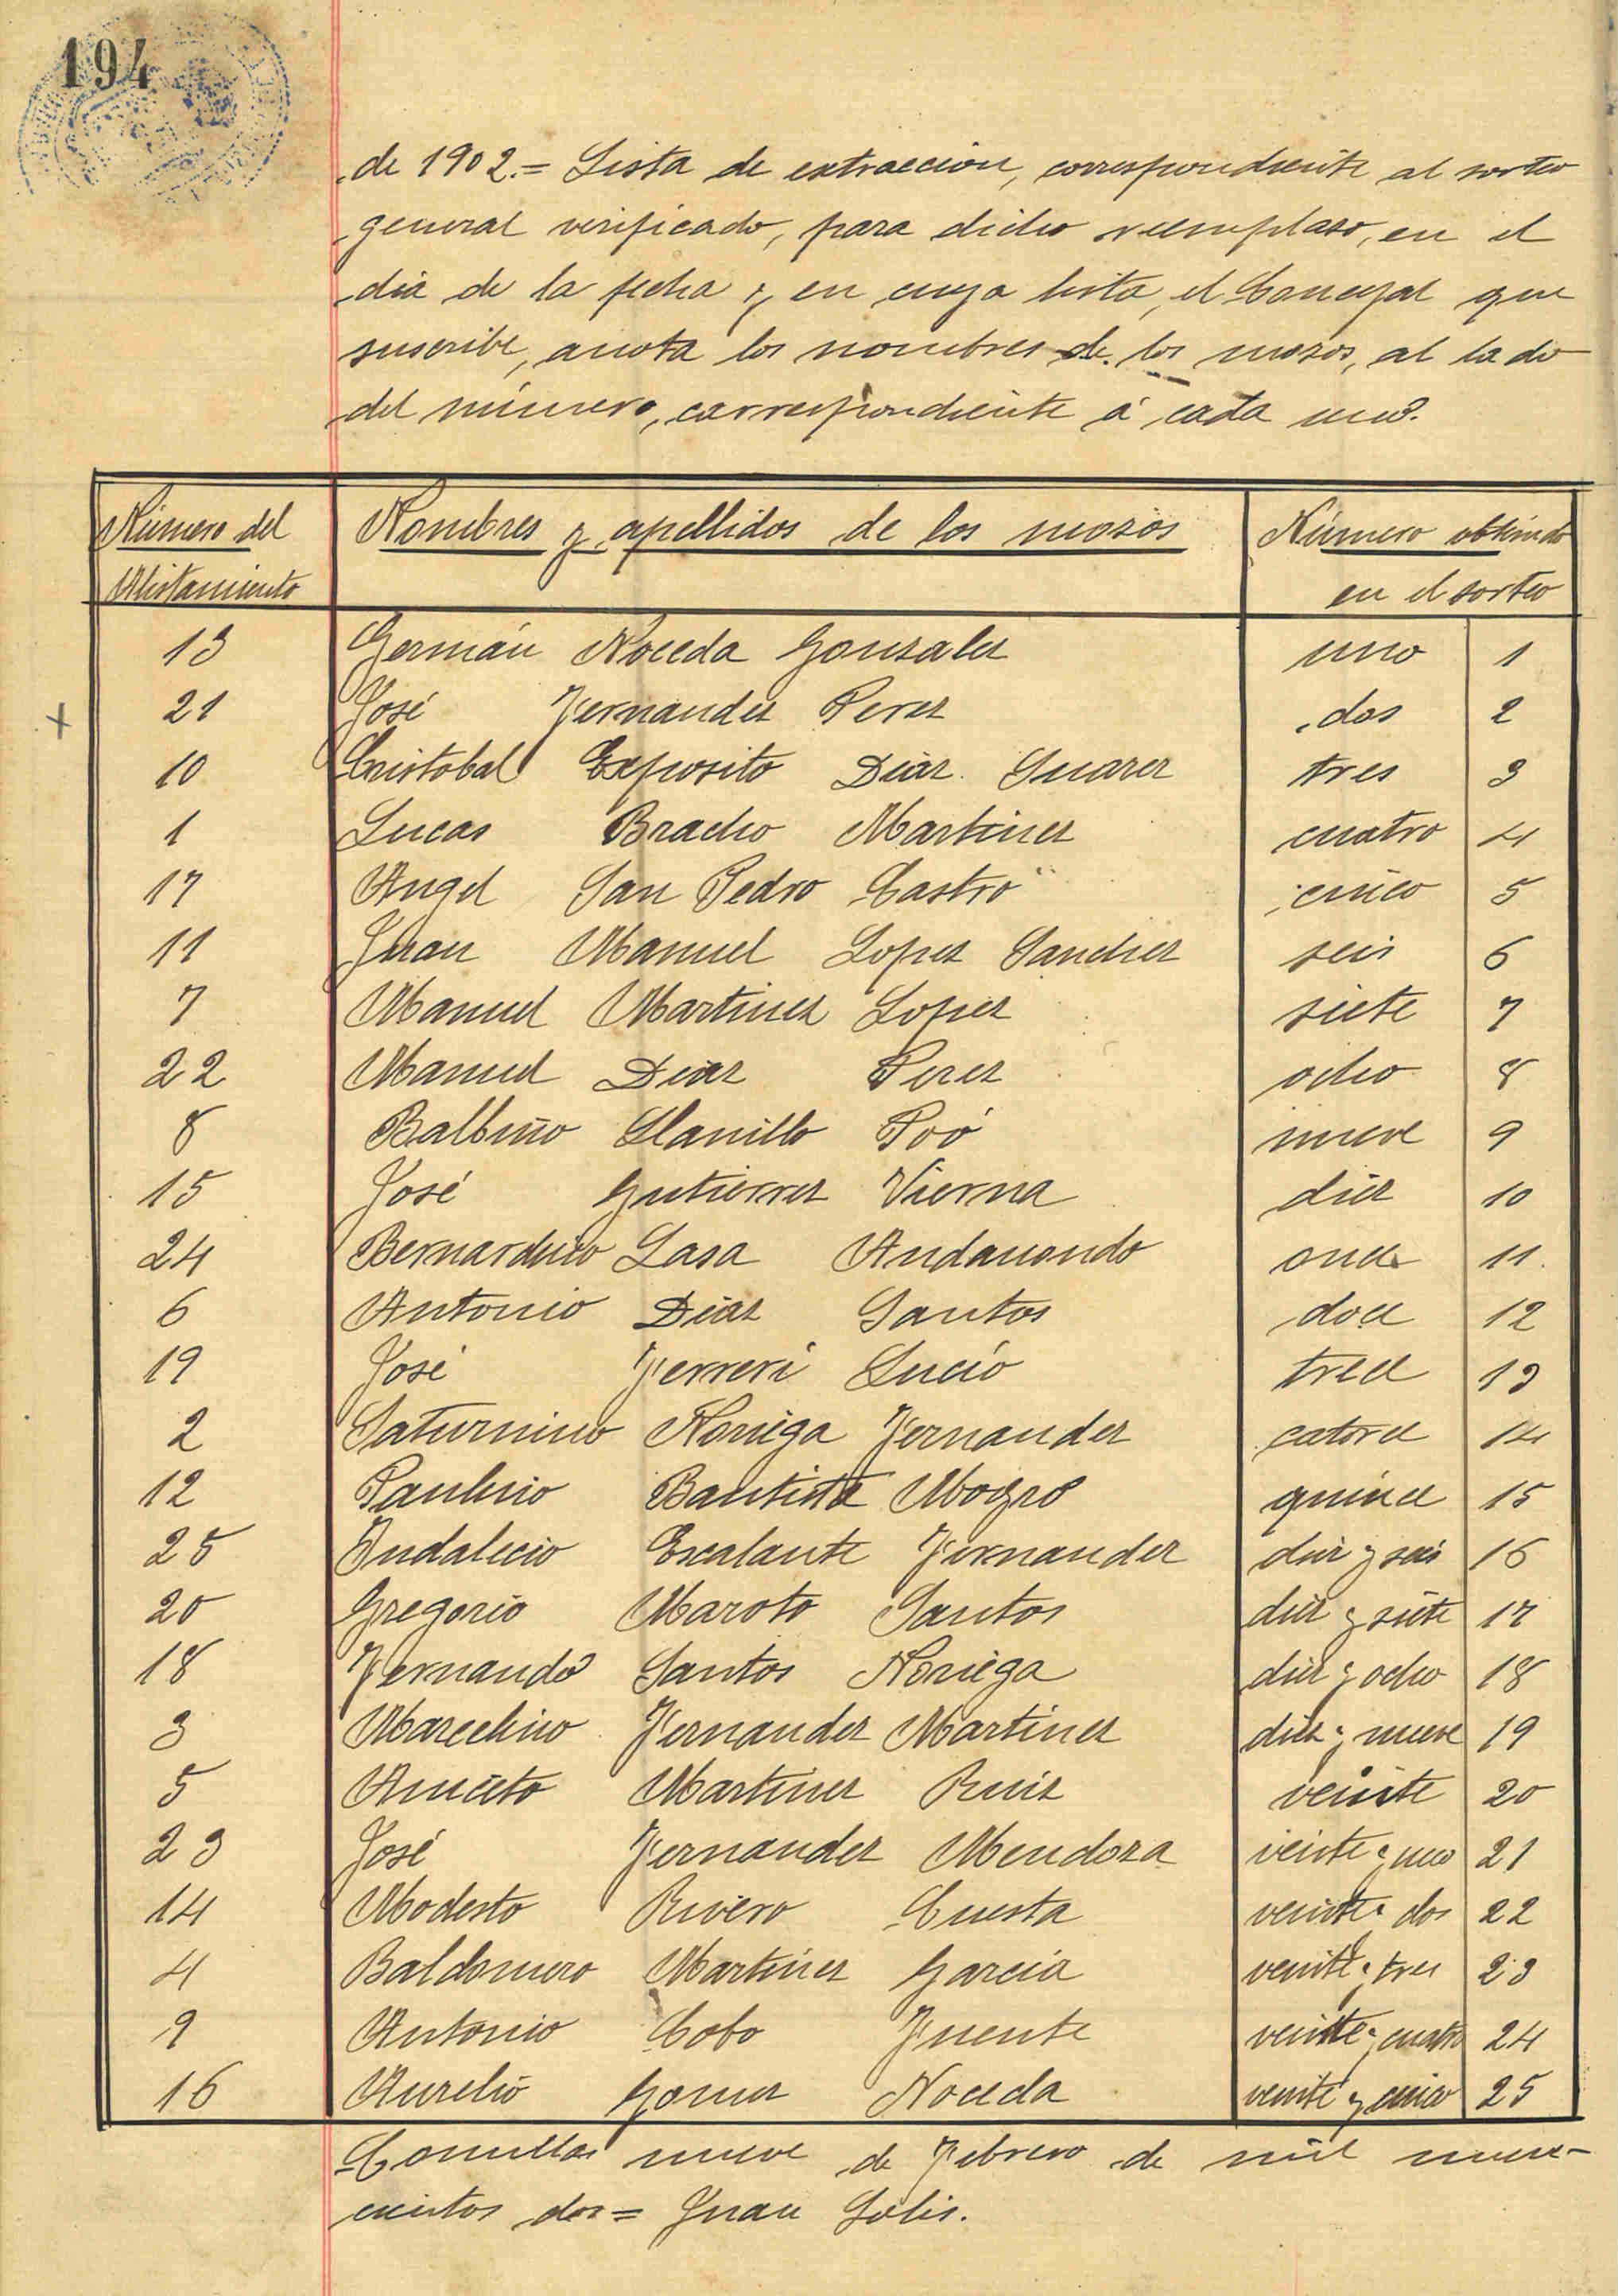 194
de 1902.= Lista de extraccion, correspondiente al sorteo
general verificado, para dicho reemplazo, en el
dia de la fecha y en cuya lista, el Concejal que
suscribe, anota los nombres de los mozos, al lado
del número, correspondiente á cada uno.
Número del Alistamiento | Nombres y apellidos de los mozos | Número obtenido en el sorteo
13 Germán Noceda Gonzalez uno 1
+ 21 José Fernandez Perez dos 2
10 Cristobal Exposito Diaz Suarez tres 3
1 Lucas Bracho Martinez cuatro 4
17 Angel San Pedro Castro cinco 5
11 Juan Manuel Lopez Sanchez seis 6
7 Manuel Martinez Lopez siete 7
22 Manuel Diaz Perez ocho 8
8 Balbino Llanillo Poó nueve 9
15 José Gutierrez Vierna diez 10
24 Bernardino Lasa Andamondo once 11
6 Antonio Diaz Santos doce 12
19 José Ferreri Lucio trece 13
2 Saturnino Noriega Fernandez catorce 14
12 Paulino Bautista Mogro quince 15
25 Indalecio Escalante Fernandez diez y seis 16
20 Gregorio Maroto Santos diez y siete 17
18 Fernando Santos Noriega diez y ocho 18
3 Marcelino Fernandez Martinez diez y nueve 19
5 Aniceto Martinez Ruiz veinte 20
23 José Fernandez Mendoza veinte y uno 21
14 Modesto Rivero Cuesta veinte y dos 22
4 Baldomero Martinez Garcia veinte y tres 23
9 Antonio Cobo Fuente veinte y cuatro 24
16 Aurelio Gomez Noceda veinte y cinco 25
Comillas nueve de Febrero de mil nove-
cientos dos = Juan Solis.